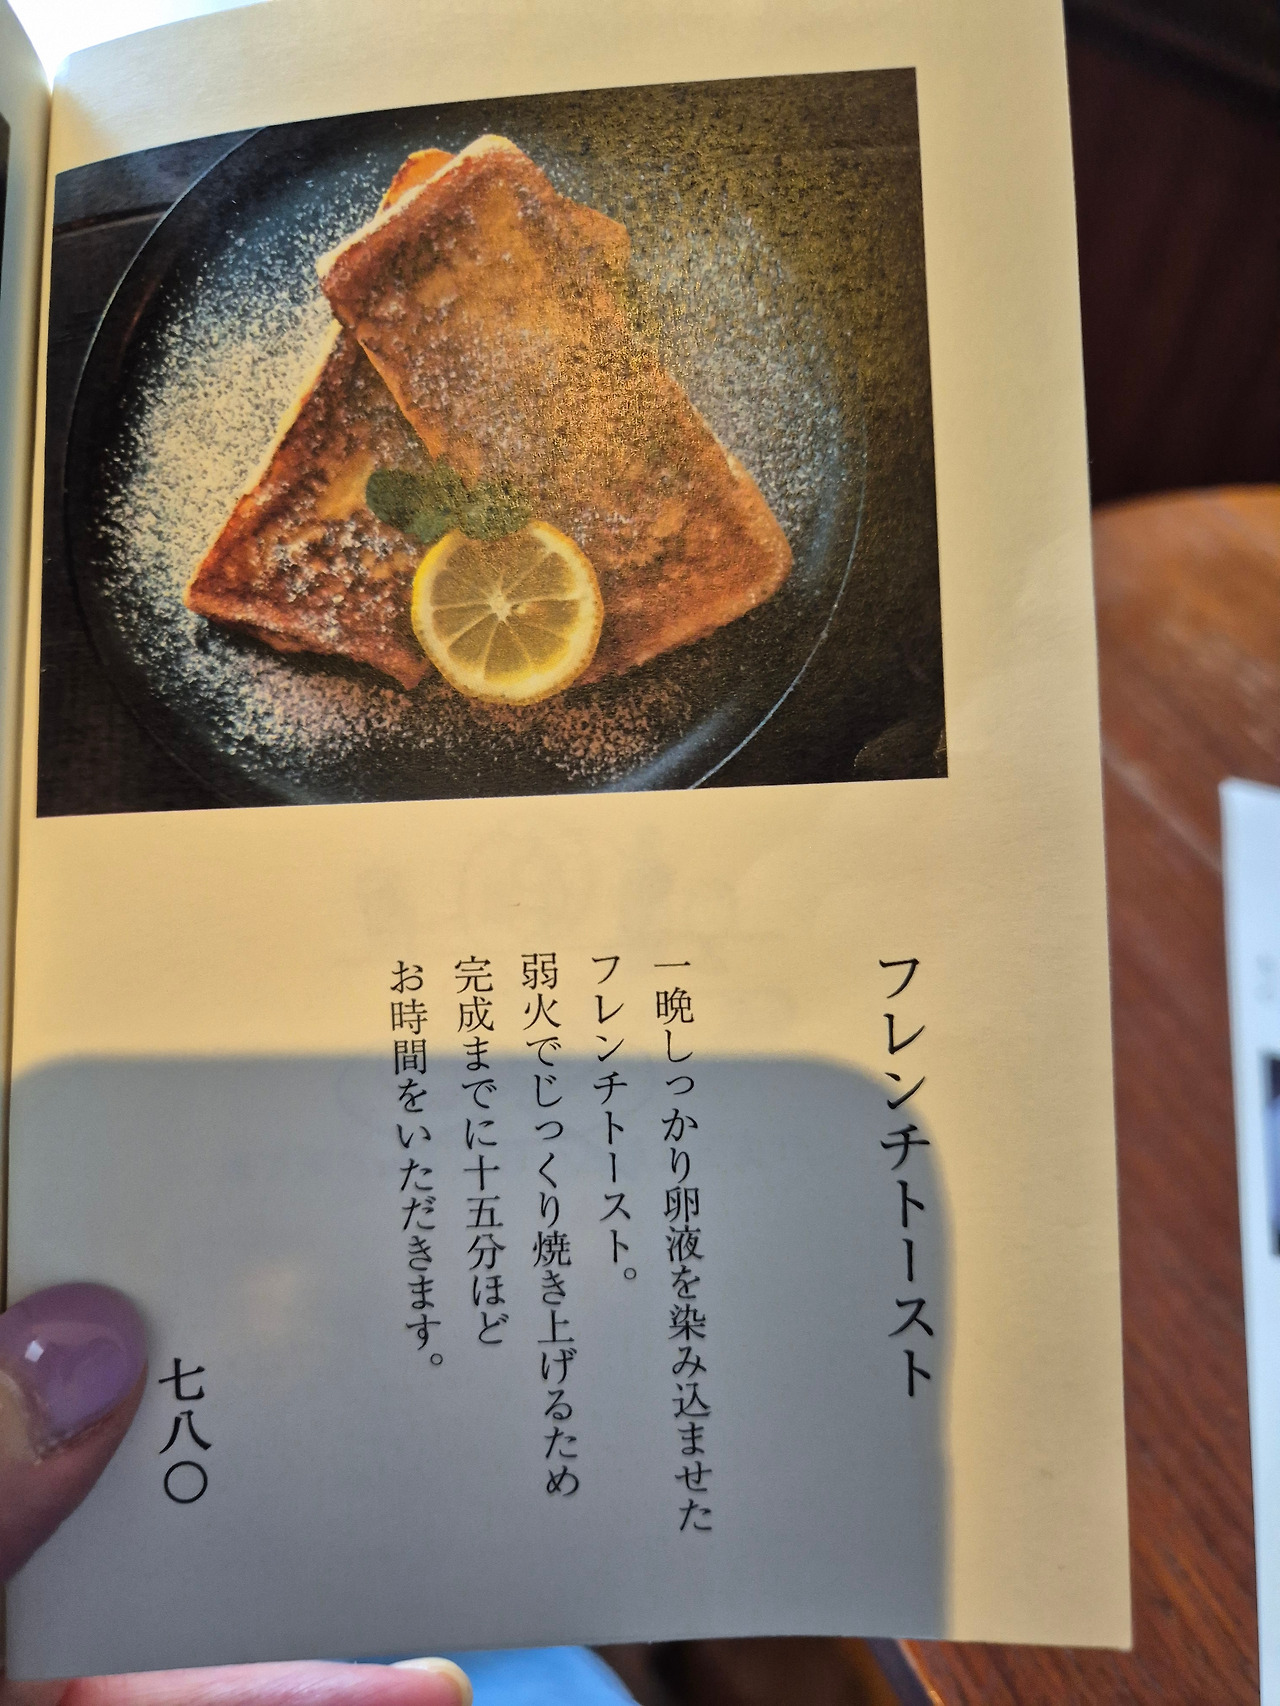 フレンチトースト
一晩しっかり卵液を染み込ませた
フレンチトースト。
弱火でじっくり焼き上げるため
完成までに十五分ほど
お時間をいただきます。
七八〇